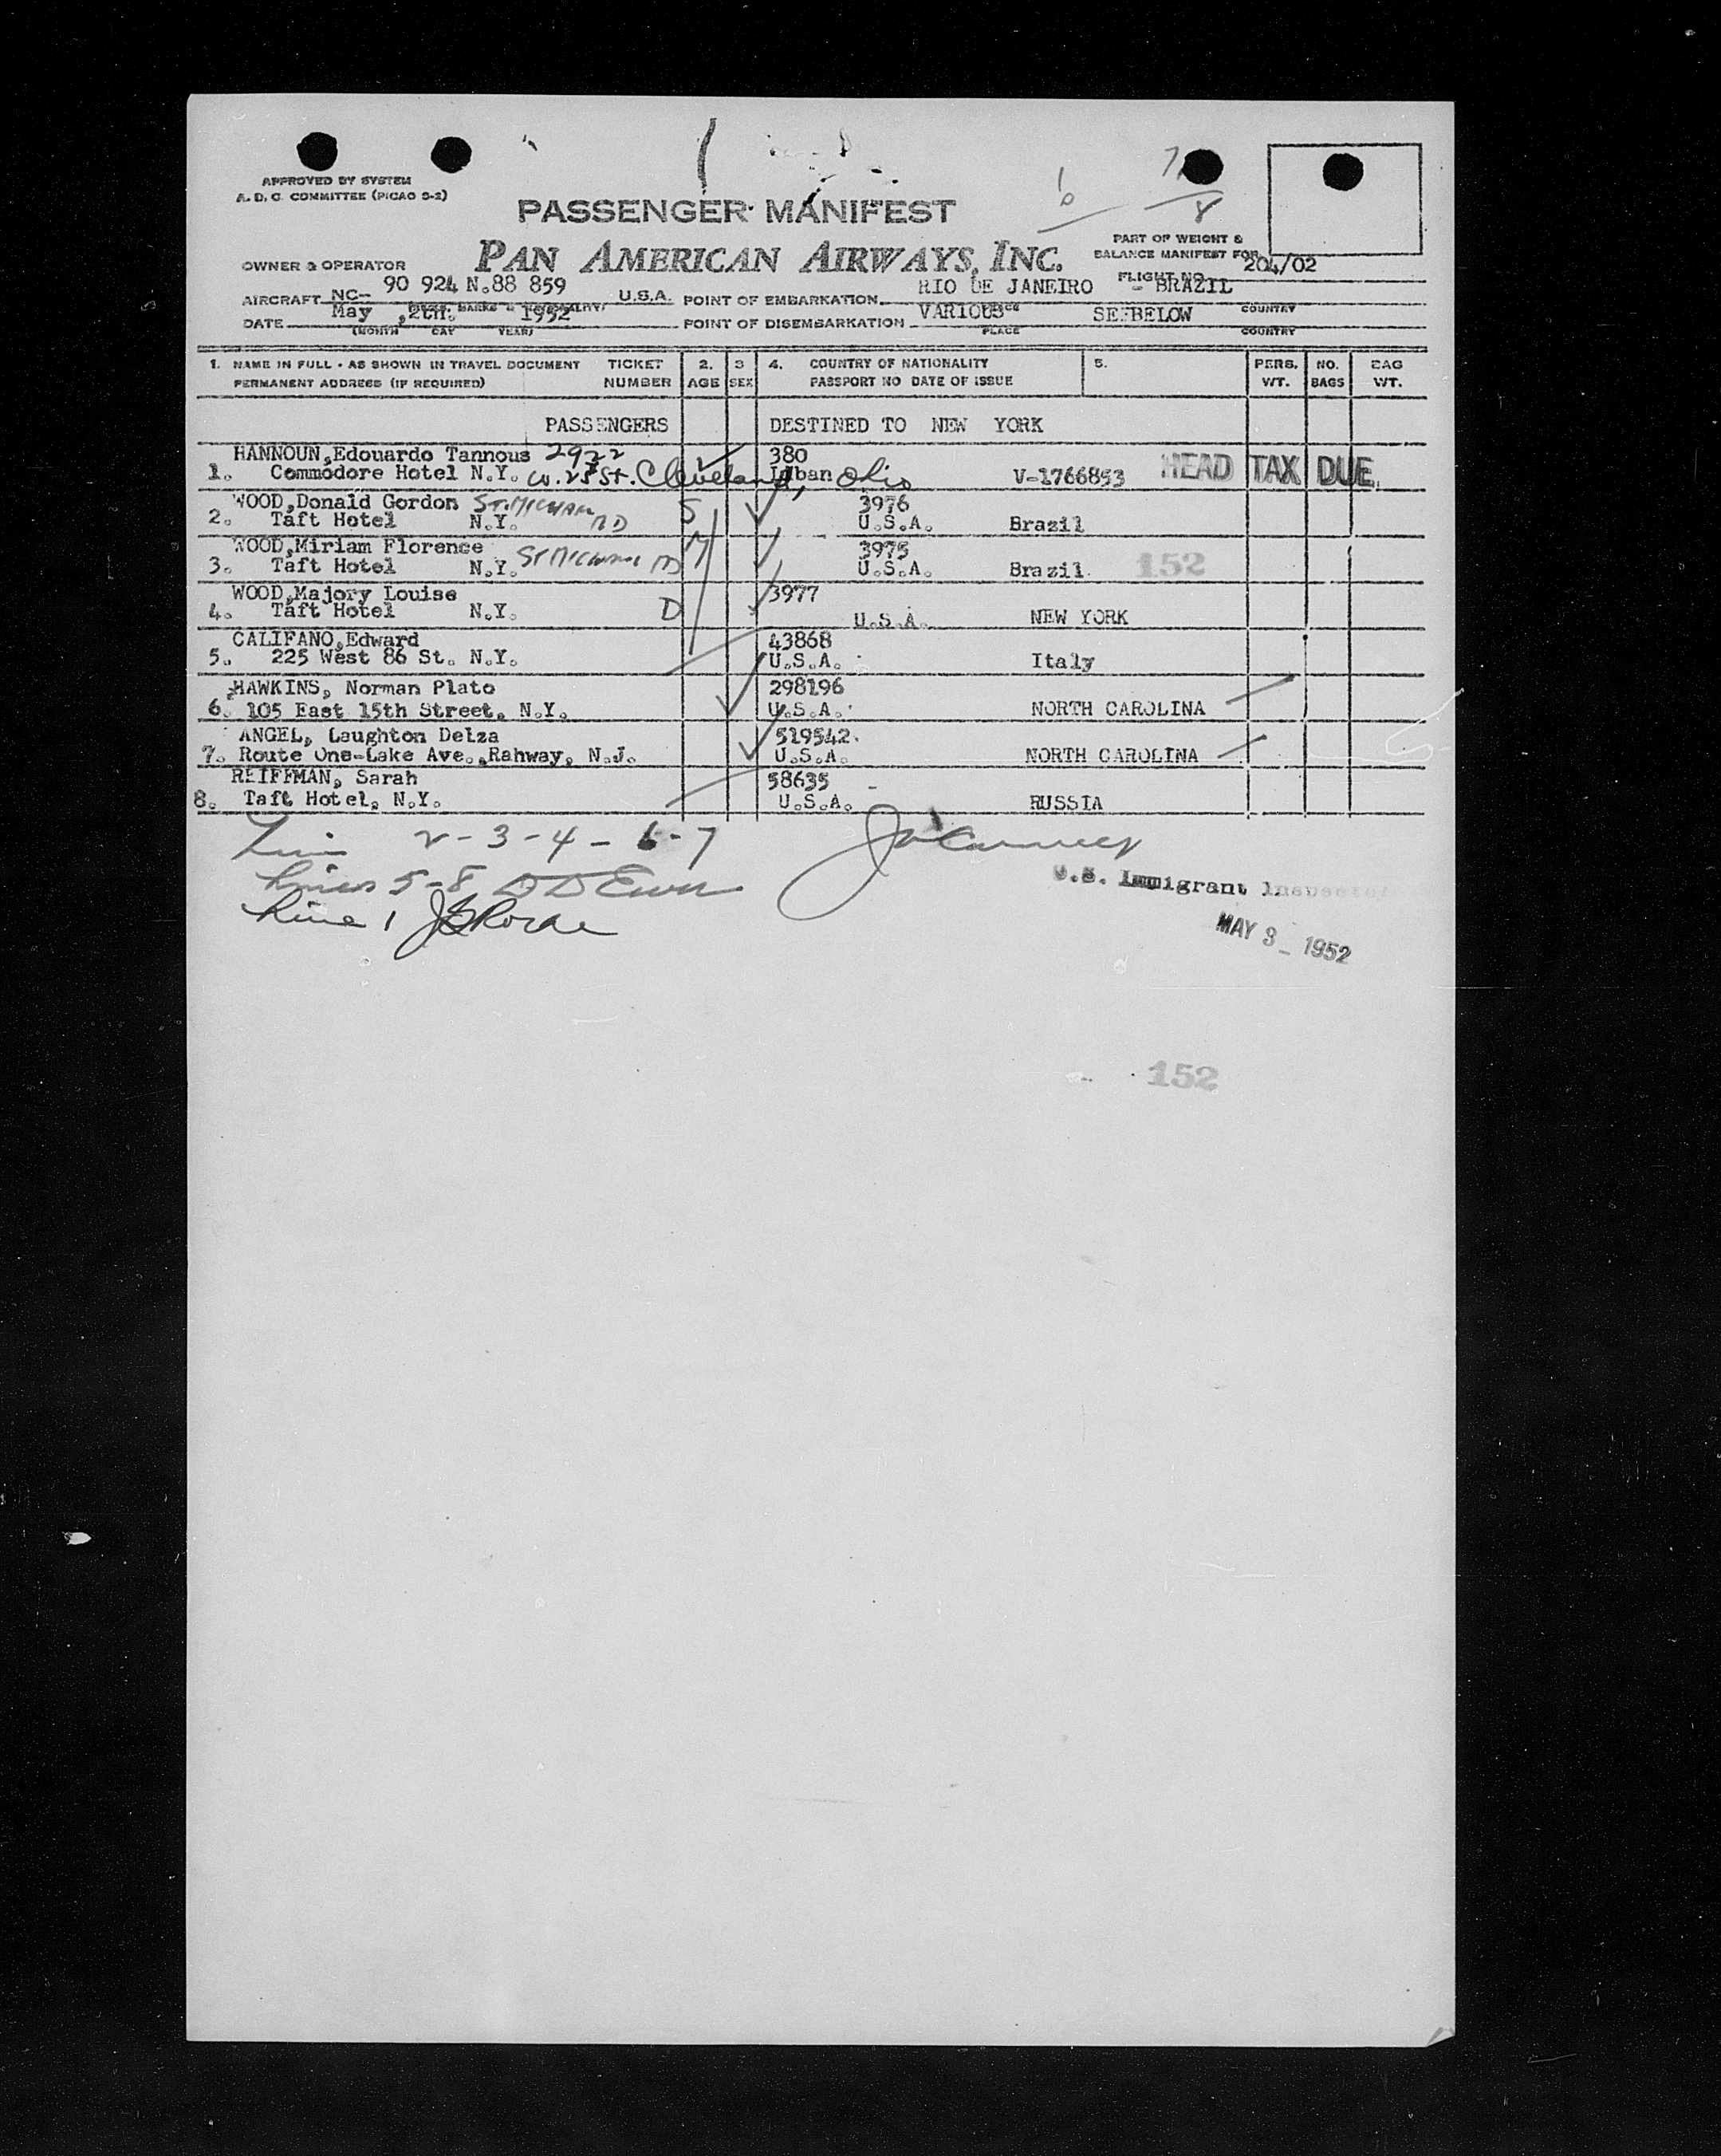 APPROVED BY SYSTEM
A. D. C. COMMITTEE (PICAO 9-2)
PASSENGER MANIFEST
6
7
8
PART OF WEIGHT &
BALANCE MANIFEST FOR
OWNER & OPERATOR PAN AMERICAN AIRWAYS, INC.
FLIGHT NO. 204/02
AIRCRAFT NC-- 90 924 N.88 859 U.S.A. POINT OF EMBARKATION RIO DE JANEIRO - BRAZIL
COUNTRY
DATE May ,2th. 1952 POINT OF DISEMBARKATION VARIOUS SEEBELOW
(MONTH DAY YEAR) PLACE COUNTRY
1. NAME IN FULL - AS SHOWN IN TRAVEL DOCUMENT TICKET 2. 3 4. COUNTRY OF NATIONALITY 5. PERS. NO. BAG
PERMANENT ADDRESS (IF REQUIRED) NUMBER AGE SEX PASSPORT NO DATE OF ISSUE WT. BAGS WT.
PASSENGERS DESTINED TO NEW YORK
HANNOUN,Edouardo Tannous 2922 380
1. Commodore Hotel N.Y. W. 25 St. Cleveland, Ohio Liban V-1766853 HEAD TAX DUE
WOOD,Donald Gordon ST. MICHAELS MD S 3976
2. Taft Hotel N.Y. U.S.A. Brazil
WOOD,Miriam Florence ST MICHAELS MD M 3975
3. Taft Hotel N.Y. U.S.A. Brazil 152
WOOD,Majory Louise 3977
4. Taft Hotel N.Y. D U.S.A. NEW YORK
CALIFANO,Edward 43868
5. 225 West 86 St. N.Y. U.S.A. Italy
HAWKINS, Norman Plato 298196
6. 105 East 15th Street, N.Y. U.S.A. NORTH CAROLINA
ANGEL, Laughton Delza 519542
7. Route One-Lake Ave., Rahway, N.J. U.S.A. NORTH CAROLINA
REIFFMAN, Sarah 58635
8. Taft Hotel, N.Y. U.S.A. RUSSIA
2-3-4-6-7
Lines 5-8
Line 1
U.S. Immigrant Inspector
MAY 3 - 1952
152